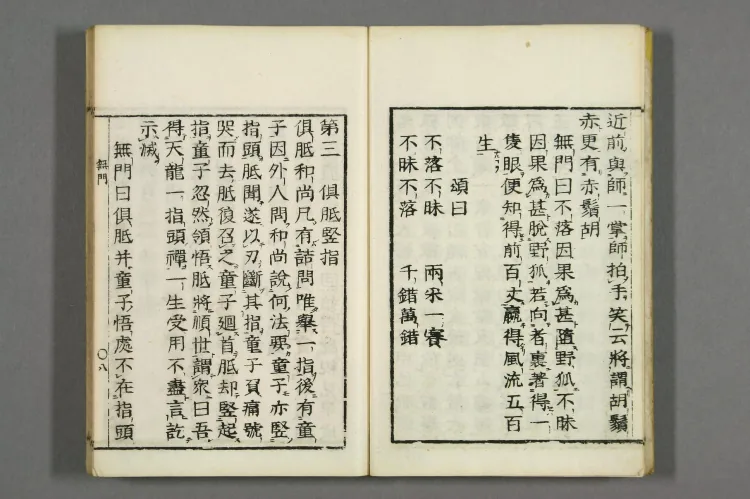 近前與師一掌師拍手笑云將謂胡鬚
赤更有赤鬚胡
無門曰不落因果爲甚墮野狐不昧
因果爲甚脫野狐若向者裏著得一
隻眼便知得前百丈贏得風流五百
生
頌曰
不落不昧 兩采一賽
不昧不落 千錯萬錯
第三 俱胝竪指
俱胝和尚凡有詰問唯擧一指後有童
子因外人問和尚說何法要童子亦竪
指頭胝聞遂以刃斷其指童子負痛號
哭而去胝復召之童子廻首胝却竪起
指童子忽然領悟胝將順世謂衆曰吾
得天龍一指頭禪一生受用不盡言訖
示滅
無門曰俱胝并童子悟處不在指頭
無門
〇八